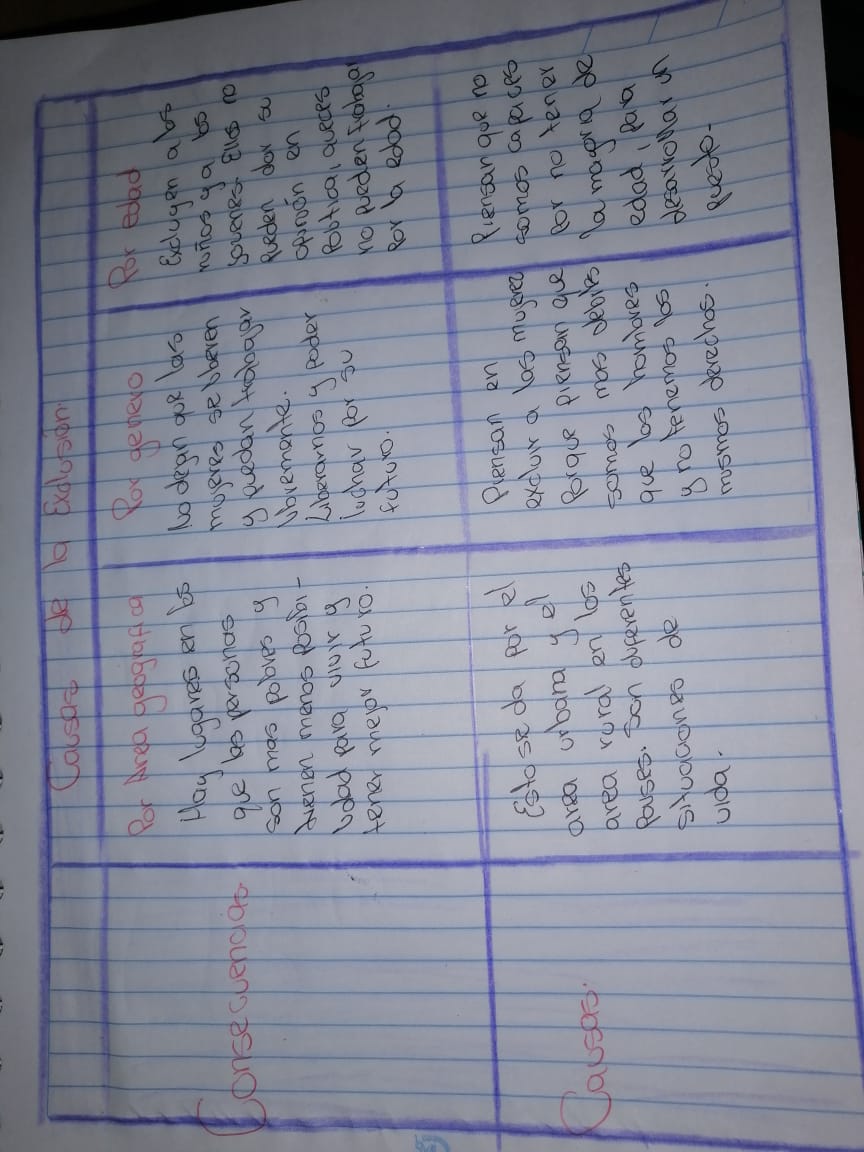 Causas de la Exclusión.
Por Area geografica
Por genero
Por edad
Consecuencias
Hay lugares en los
que las personas
son mas pobres y
tienen menos posibi-
lidad para vivir y
tener mejor futuro.
No dejan que las
mujeres se liberen
y puedan trabajar
libremente.
Liberarnos y poder
luchar por su
futuro.
Excluyen a los
niños y a los
jovenes. Ellos no
pueden dar su
opinión en
politica, aveces
no pueden trabajar
por la edad.
Causas.
Esto se da por el
area urbana y el
area rural en los
paises. Son diferentes
situaciones de
vida.
Piensan en
excluir a las mujeres
porque piensan que
somos mas debiles
que los hombres
y no tenemos los
mismos derechos.
Piensan que no
somos capaces
por no tener
la mayoria de
edad, para
desarrollar un
puesto.